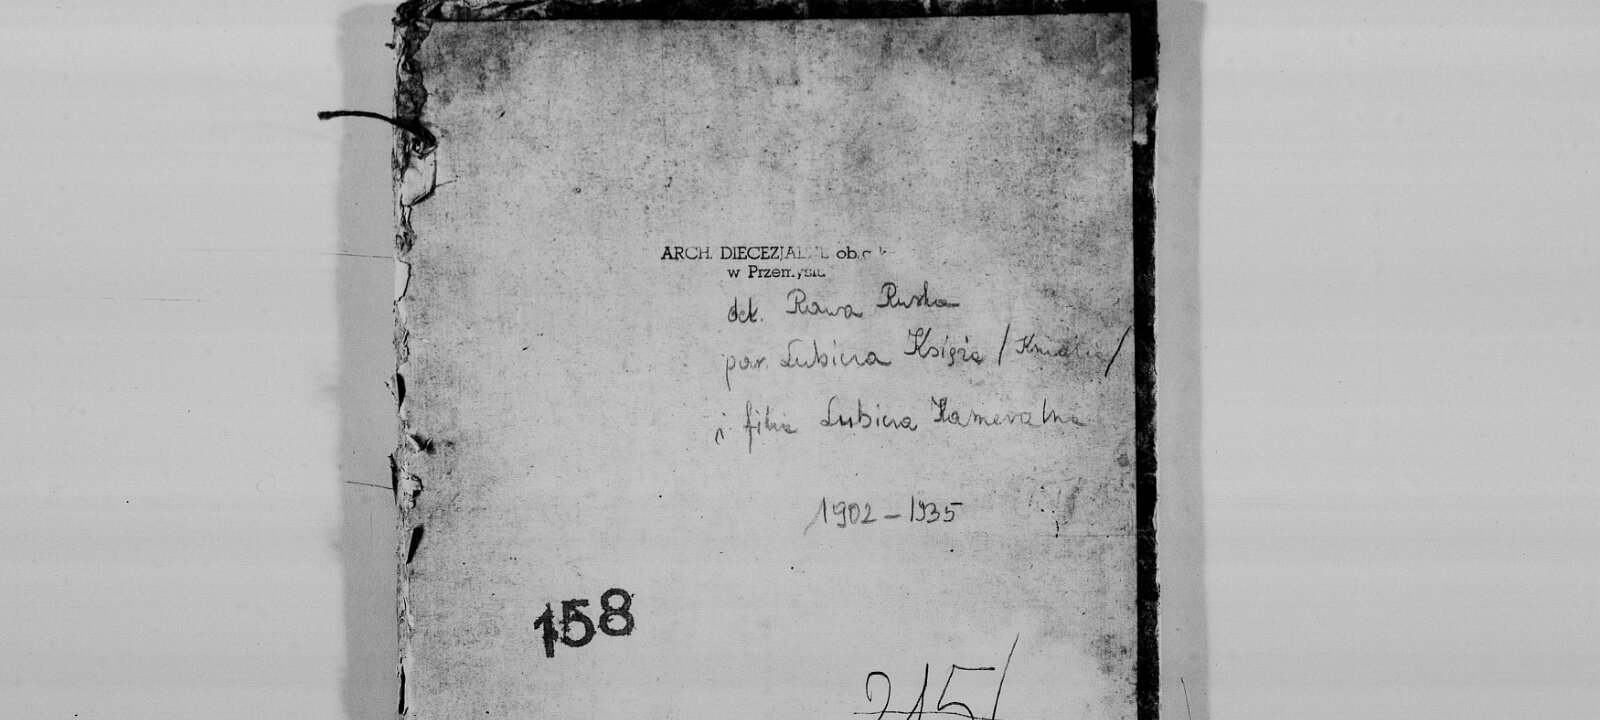 ARCH. DIECEZJALNE ob.
w Przemyślu
dek. Rawa Ruska
par. Lubicza Księża / Kniazie /
i filia Lubicza Kameralna
1902 – 1935
158
215/